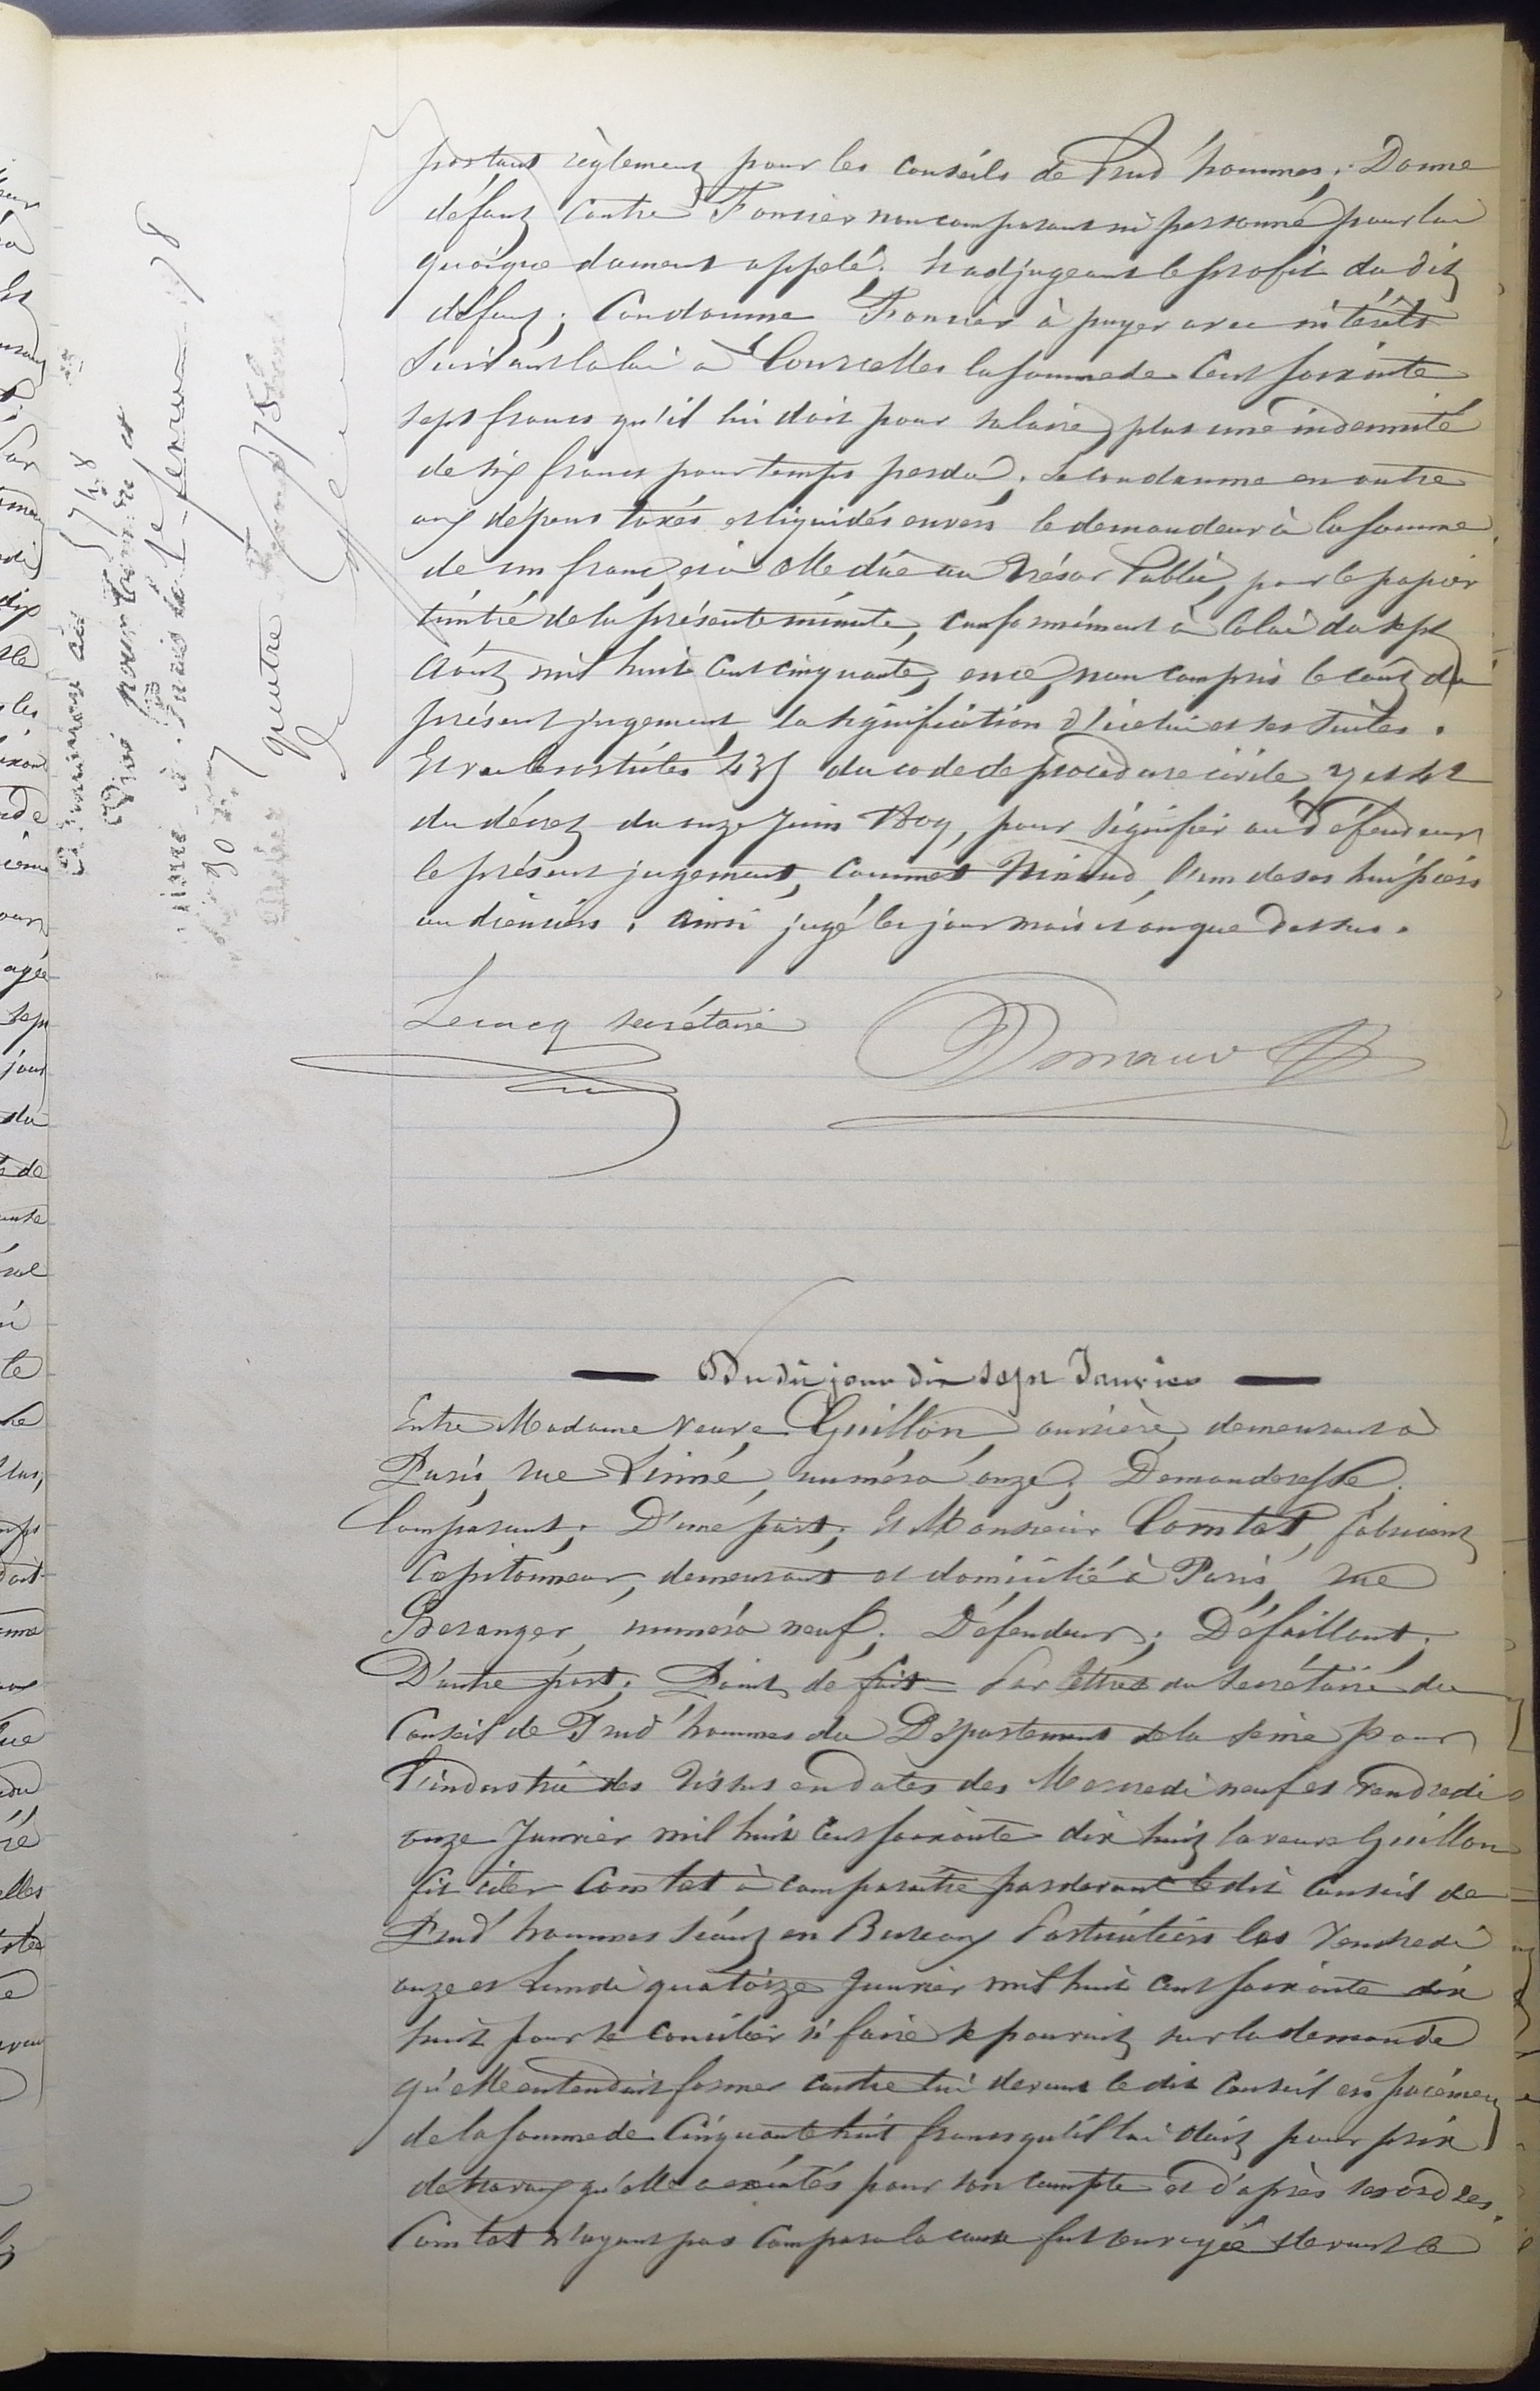 portant règlement pour les conseils de Prud'hommes; Donne
défaut contre Foncier non comparant ni personne pour lui
quoique dument appelé; Et adjugeant le profit du dit
défaut; Condamne Foncier à payer avec intérêts
suivant la loi à Courcelles la somme de Cent soixante
sept francs qu'il lui doit pour salaire, plus une indemnité
de six francs pour temps perdu. Le condamne en outre
aux dépens taxés et liquidés envers le demandeur à la somme
de un franc, et à celle dûe au Trésor Public, pour le papier
timbré de la présente minute, conformément à la loi du sept
Août mil huit cent cinquante, en ce, non compris le coût du
présent jugement, la signification d'icelui et ses suites.
Et vu les articles 435 du code de procédure civile, 27 et 42
du décret du onze Juin 1809, pour signifier au défendeur
le présent jugement, commet l'un de ses huissiers
audienciers; Ainsi jugé les jour mois et an que dessus.
Lecucq secrétaire
Du dit jour dix sept Janvier
Entre Madame Veuve Guillon, ouvrière, demeurant à
Paris, rue Linné, numéro onze; Demanderesse;
Comparant; D'une part; Et Monsieur Comtat, fabricant
Capitonneur, demeurant et domicilié à Paris, rue
Beranger, numéro neuf; Défendeur; Défaillant;
D'autre part; Point de fait - Par lettres du secrétaire du
Conseil de Prud'hommes du Département de la Seine pour
l'industrie des Tissus en dates des Mercredi neuf et Vendredi
onze Janvier mil huit cent soixante dix huit la veuve Guillon
fit citer Comtat à comparaître pardevant le dit Conseil de
Prud'hommes séant en Bureaux Particuliers les Vendredi
onze et Lundi quatorze Janvier mil huit cent soixante dix
huit pour se concilier si faire se pouvait sur la demande
qu'elle entendait former contre lui devant le dit Conseil en paiement
de la somme de Cinquante huit francs qu'il lui doit pour prix
de travaux qu'elle a exécutés pour son compte et d'après ses ordres.
Comtat n'ayant pas comparu la cause fut renvoyée devant le